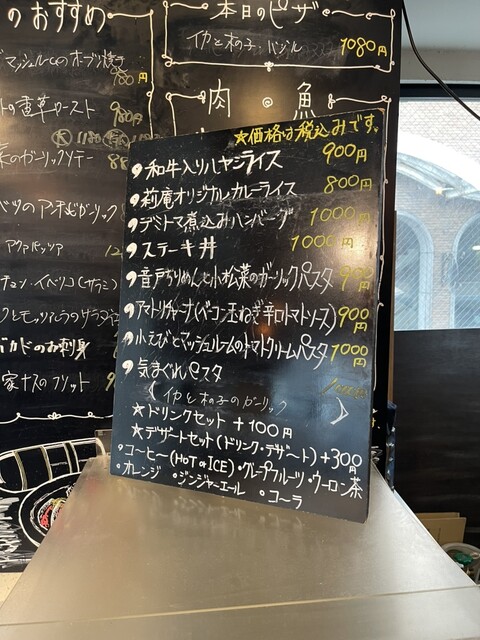 のおすすめ
マッシュルームのオーブン焼き
780円
の香草ロースト 980円
菜のガーリックソテー 88
アクアパッツァ
チョン・イベリコ(サラミ)
お刺身
家ナスのフリット
本日のピザ
イカときの子・バジル 1080円
肉・魚
★価格は税込みです。
和牛入りハヤシライス 900円
莉庵オリジナルカレーライス 800円
デミトマ煮込みハンバーグ 1000円
ステーキ丼 1000円
音戸ちりめんと小松菜のガーリックパスタ 900円
アマトリチャーナ(ベーコン玉ねぎ辛口トマトソース) 900円
小えびとマッシュルームのトマトクリームパスタ 1000円
気まぐれパスタ
イカときの子のガーリック
★ドリンクセット +100円
★デザートセット(ドリンク・デザート)+300円
・コーヒー(HOT or ICE)・グレープフルーツ・ウーロン茶
・オレンジ ・ジンジャーエール ・コーラ